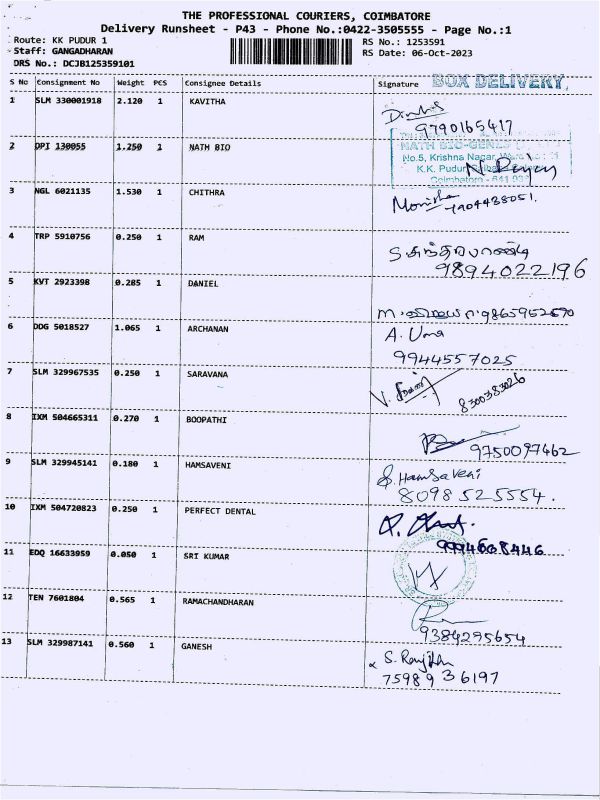 THE PROFESSIONAL COURIERS, COIMBATORE
Delivery Runsheet - P43 - Phone No.:0422-3505555 - Page No.:1
Route: KK PUDUR 1
Staff: GANGADHARAN
DRS No.: DCJB125359101
RS No.: 1253591
RS Date: 06-Oct-2023
S No Consignment No Weight PCS Consignee Details Signature BOX DELIVERY
1 SLM 330001918 2.120 1 KAVITHA
9790165417
2 DPI 130055 1.250 1 NATH BIO
NATH BIO-GENES
No.5, Krishna Nagar,
K.K. Pudur
Coimbatore - 641
3 NGL 6021135 1.530 1 CHITHRA
Monisha 7904438051.
4 TRP 5910756 0.250 1 RAM
S சுந்தரபாண்டி
9894022196
5 KVT 2923398 0.285 1 DANIEL
6 DDG 5018527 1.065 1 ARCHANAN
A. Uma
9944557025
7 SLM 329967535 0.250 1 SARAVANA
8300383026
8 IXM 504665311 0.270 1 BOOPATHI
9750097462
9 SLM 329945141 0.180 1 HAMSAVENI
S. Hamsaveni
8098525554.
10 IXM 504720823 0.250 1 PERFECT DENTAL
9994608446
11 EDQ 16633959 0.050 1 SRI KUMAR
12 TEN 7601804 0.565 1 RAMACHANDHARAN
9384295654
13 SLM 329987141 0.560 1 GANESH
7598936197